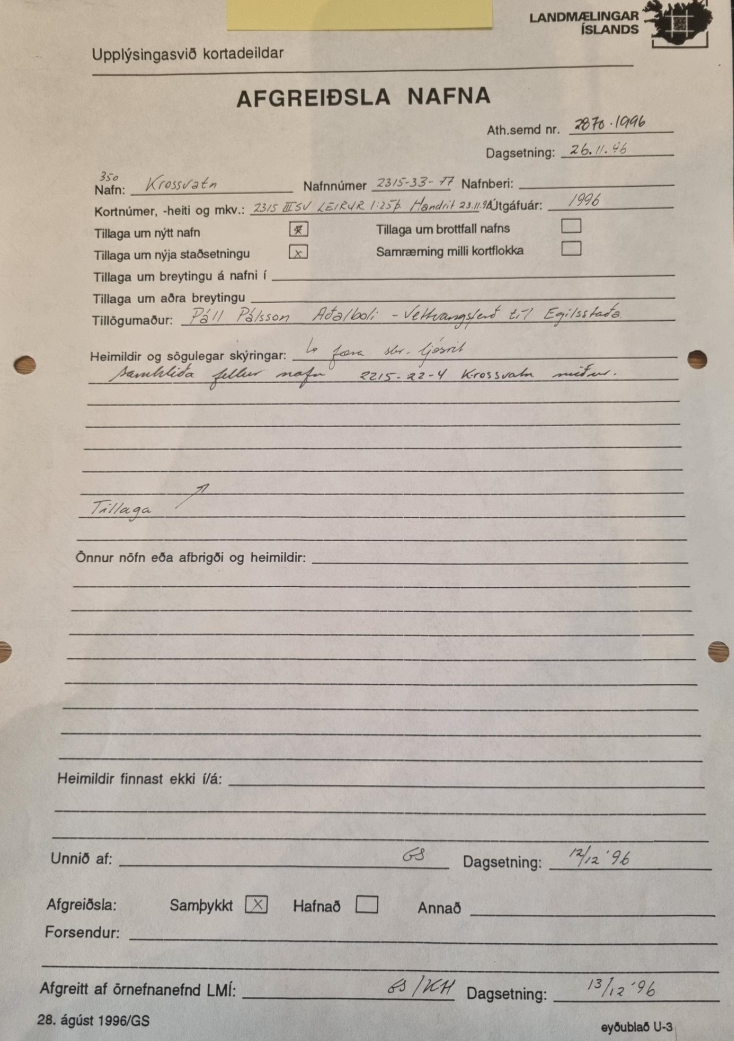 LANDMÆLINGAR
ÍSLANDS
Upplýsingasvið kortadeildar
AFGREIÐSLA NAFNA
Ath.semd nr. 2870-1996
Dagsetning: 26.11.96
350
Nafn: Krossvatn Nafnnúmer 2315-33-77 Nafnberi:
Kortnúmer, -heiti og mkv.: 2315 III SV LEIRUR 1:25þ Handrit 23.11.96 Útgáfuár: 1996
Tillaga um nýtt nafn x Tillaga um brottfall nafns
Tillaga um nýja staðsetningu x Samræming milli kortflokka
Tillaga um breytingu á nafni í
Tillaga um aðra breytingu
Tillögumaður: Páll Pálsson Aðalbóli - Vettvangsferð til Egilsstaða
Heimildir og sögulegar skýringar: færa sbr. ljósrit
Samhliða fellur nafn 2215-22-4 Krossvatn niður.
Tillaga
Önnur nöfn eða afbrigði og heimildir:
Heimildir finnast ekki í/á:
Unnið af: GS Dagsetning: 12/12 '96
Afgreiðsla: Samþykkt x Hafnað Annað
Forsendur:
Afgreitt af örnefnanefnd LMÍ: GS/KH Dagsetning: 13/12 '96
28. ágúst 1996/GS eyðublað U-3